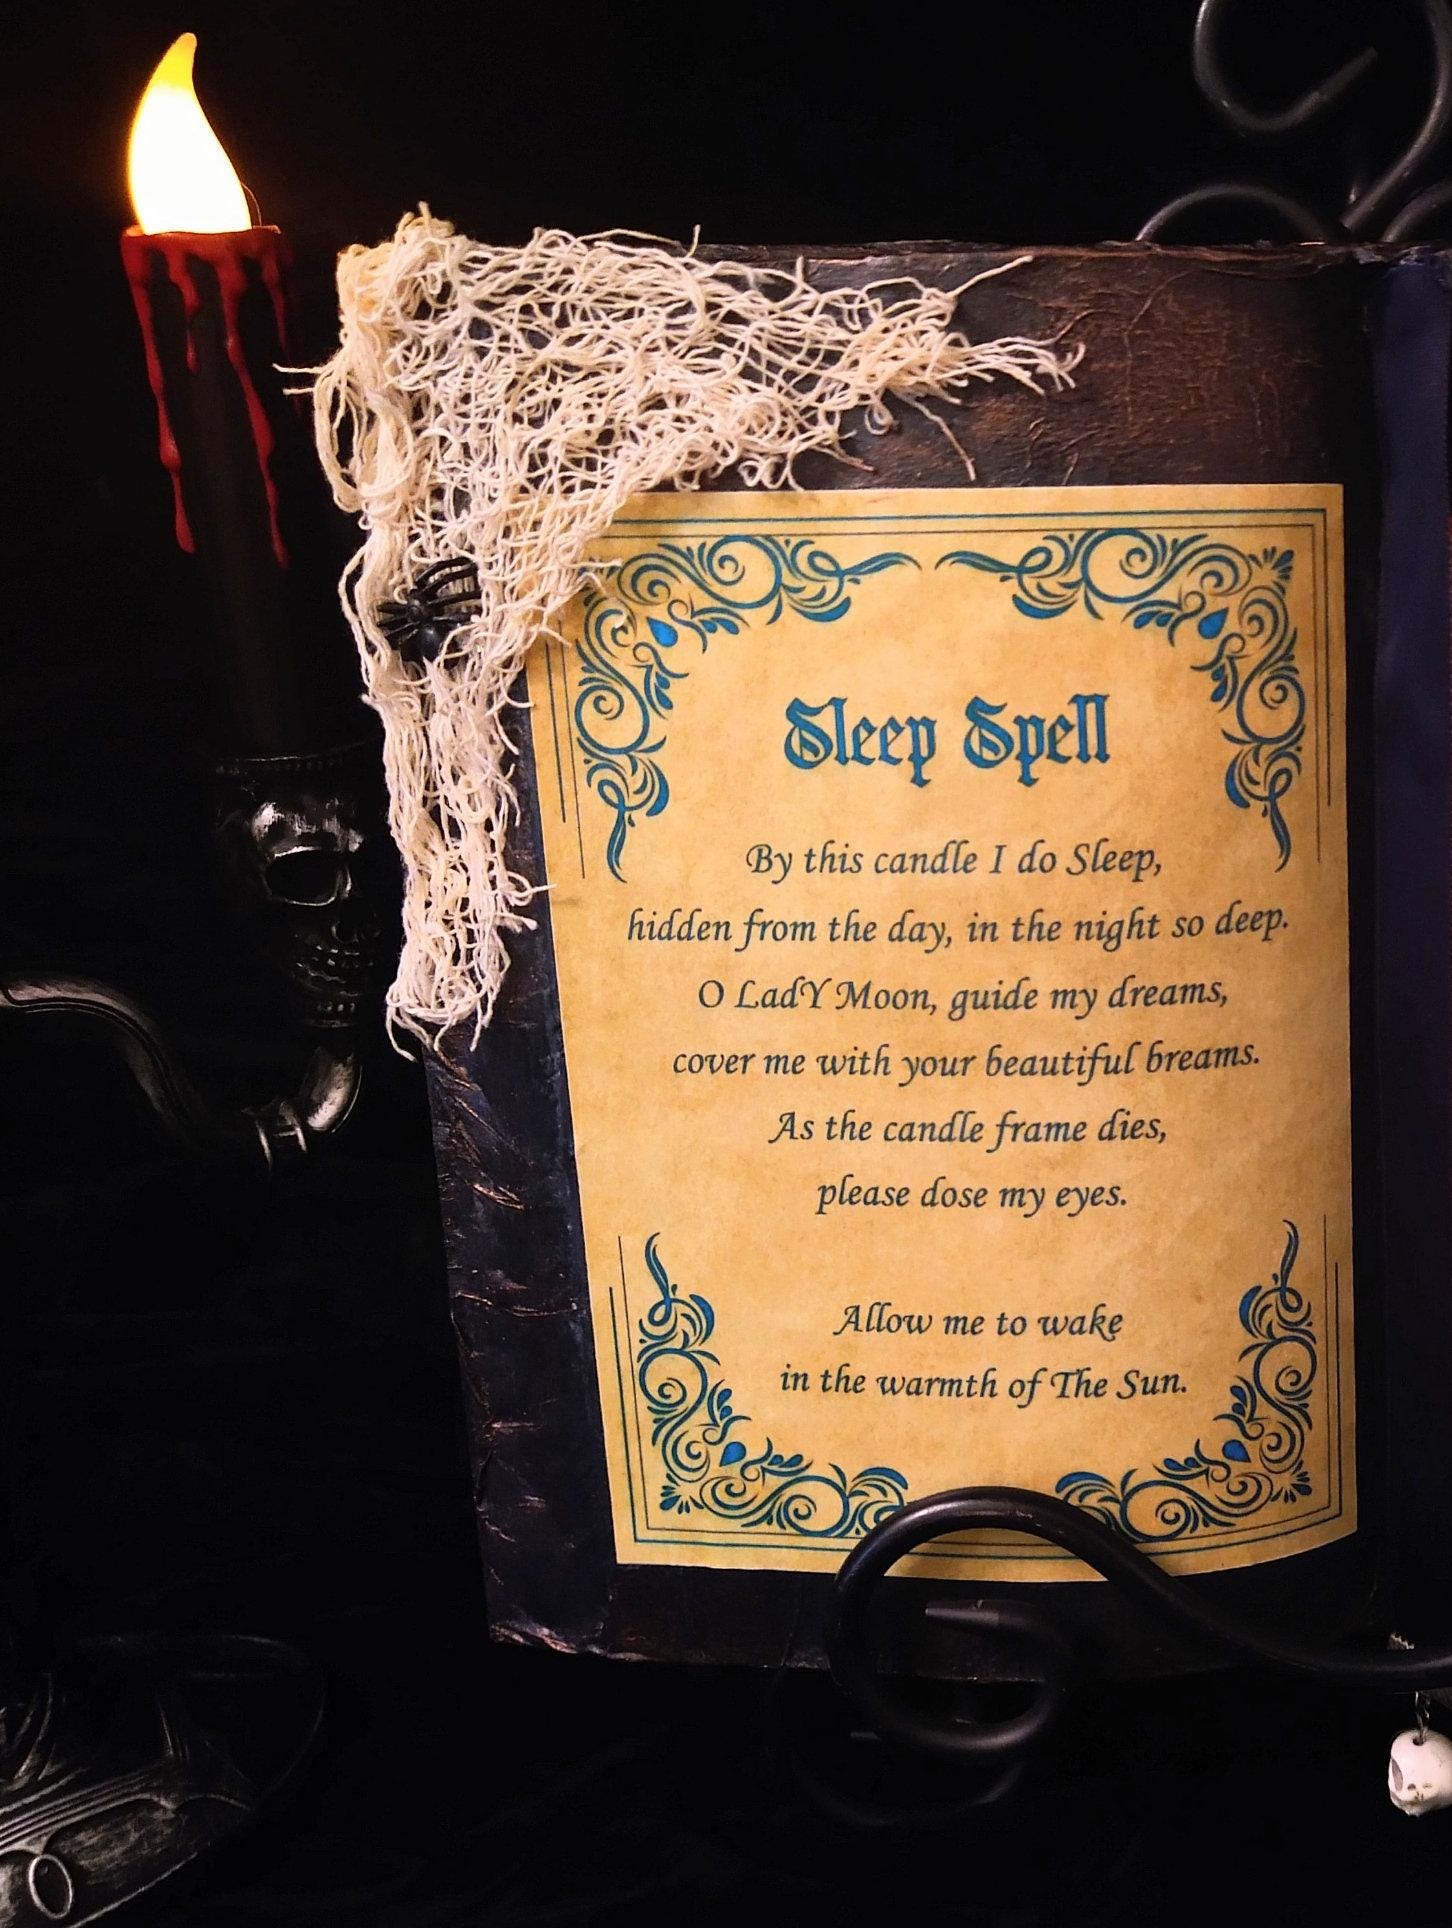 Sleep Spell
By this candle I do Sleep,
hidden from the day, in the night so deep.
O LadY Moon, guide my dreams,
cover me with your beautiful breams.
As the candle frame dies,
please dose my eyes.
Allow me to wake
in the warmth of The Sun.